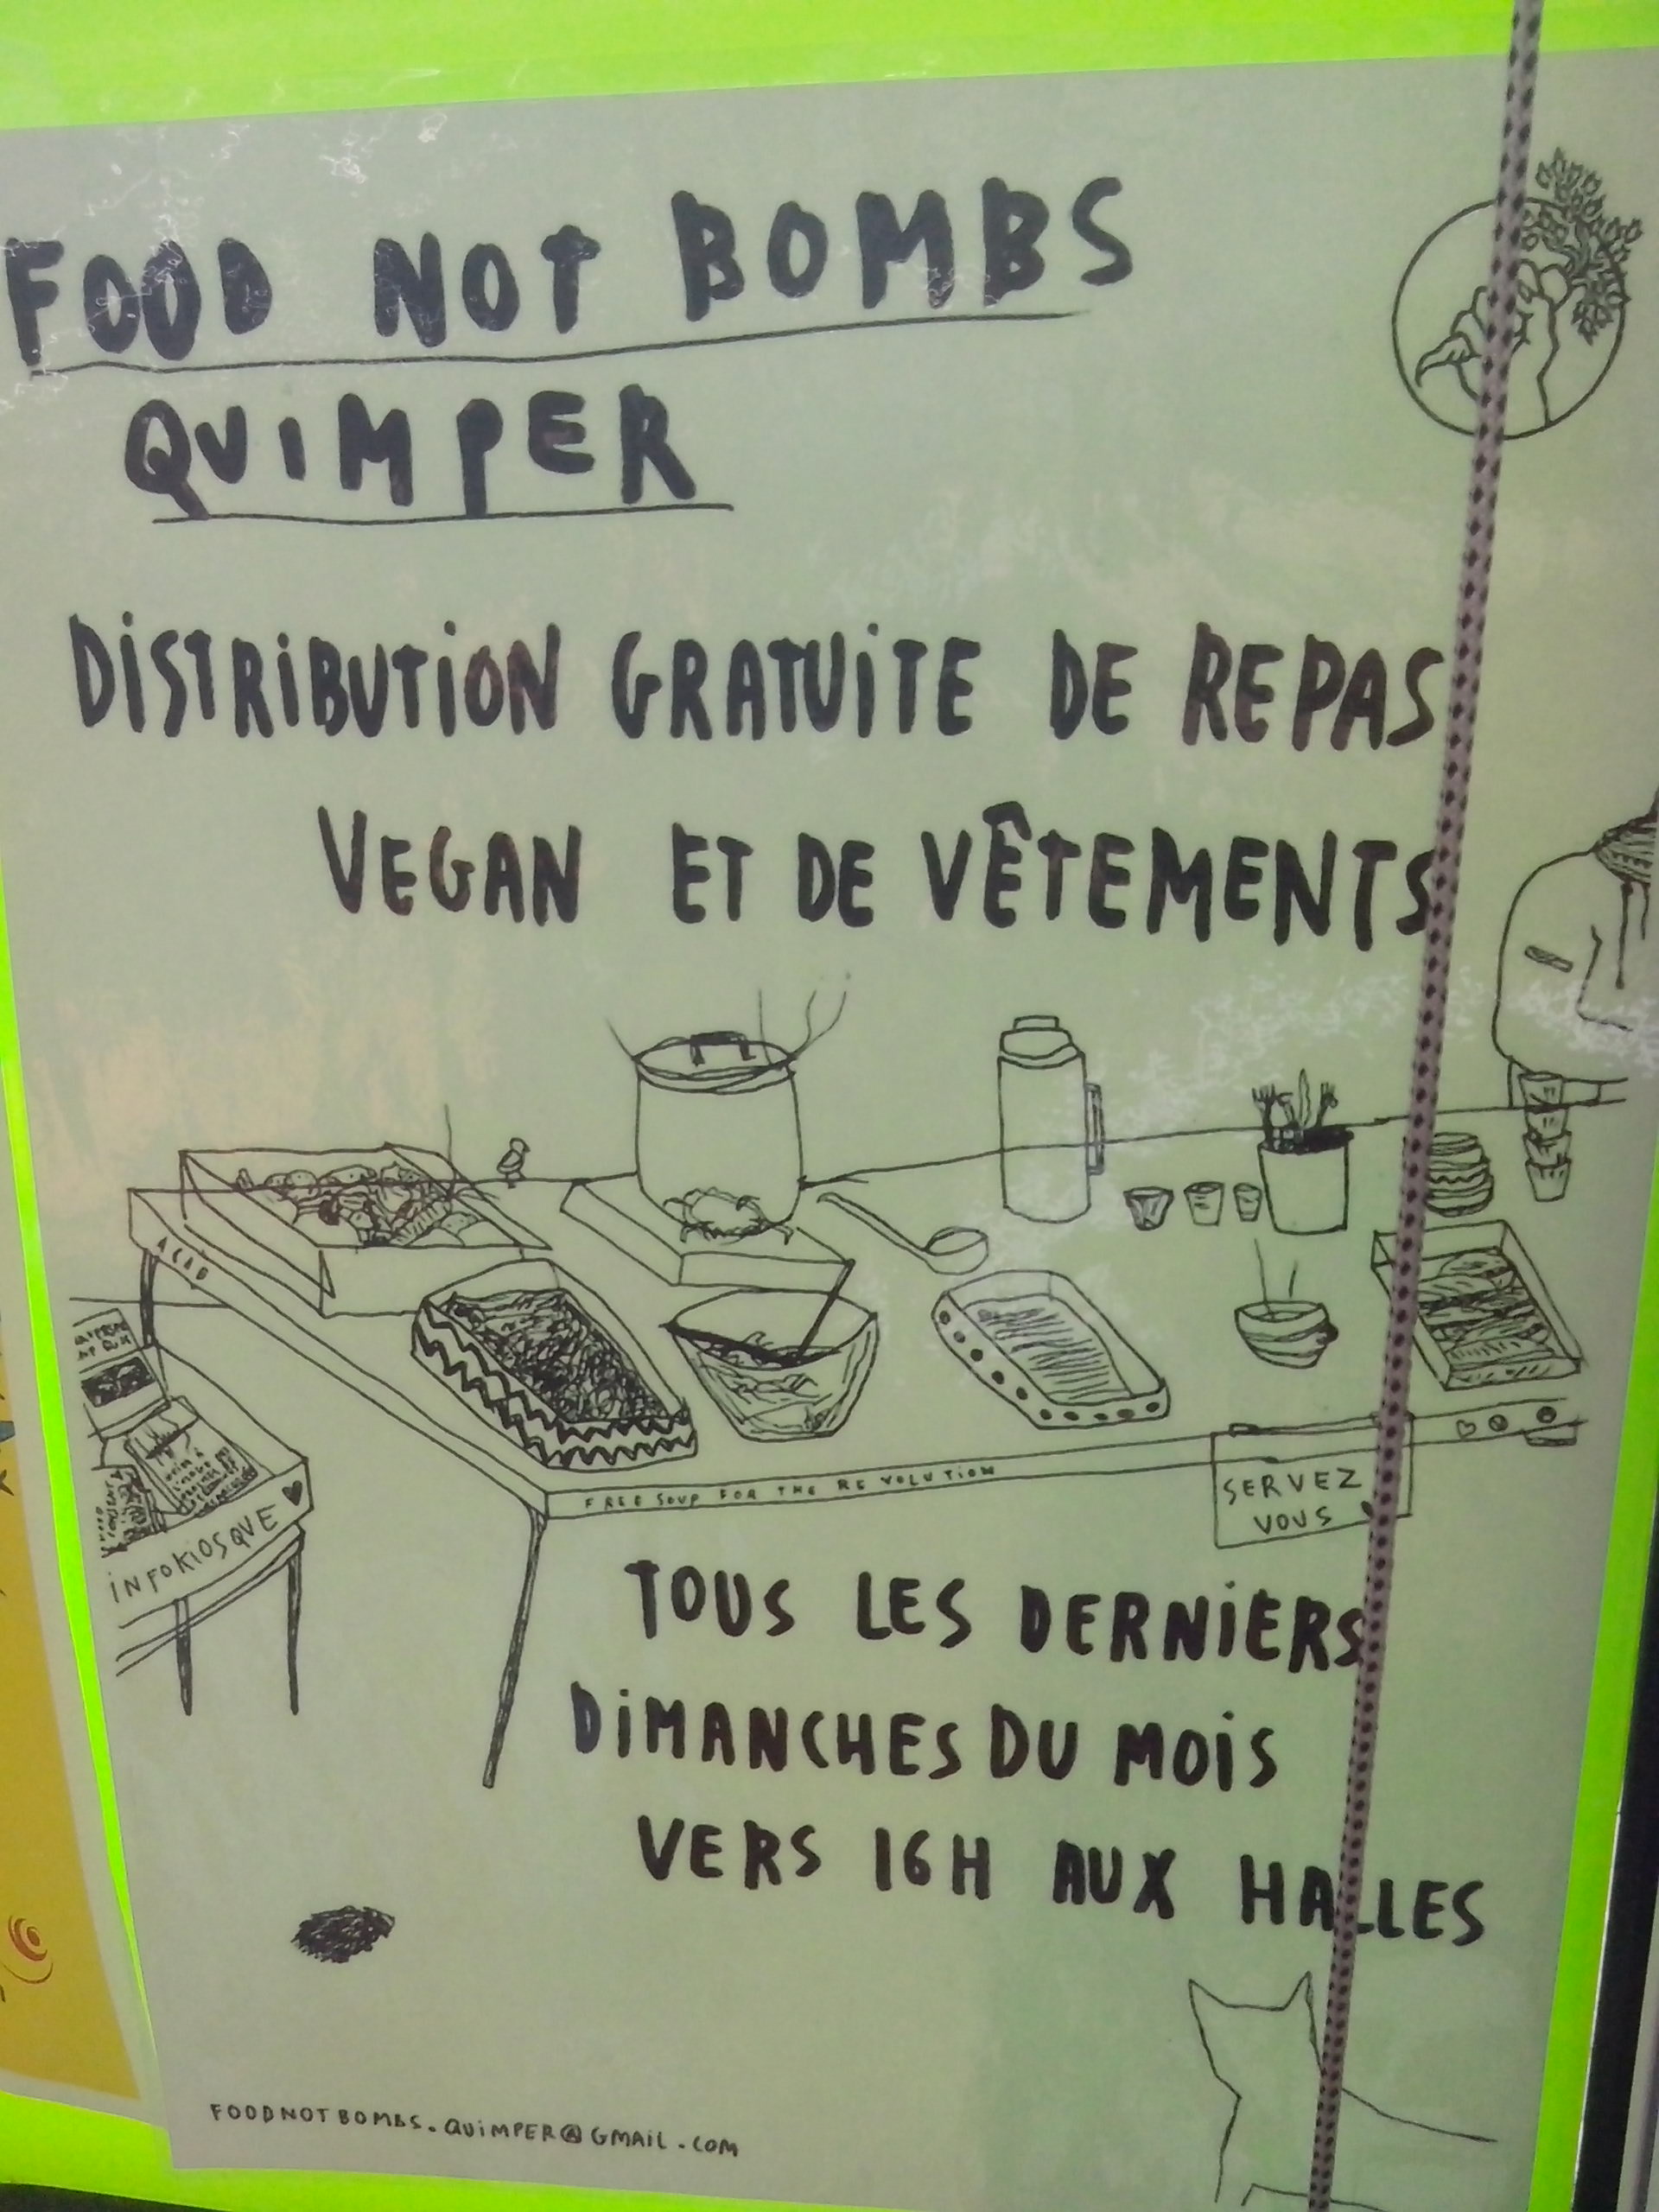 FOOD NOT BOMBS
QUIMPER
DISTRIBUTION GRATUITE DE REPAS
VEGAN ET DE VÊTEMENTS
ACAB
FREE SOUP FOR THE REVOLUTION
SERVEZ
VOUS
INFOKIOSQUE
TOUS LES DERNIERS
DIMANCHES DU MOIS
VERS 16H AUX HALLES
FOODNOTBOMBS.QUIMPER@GMAIL.COM